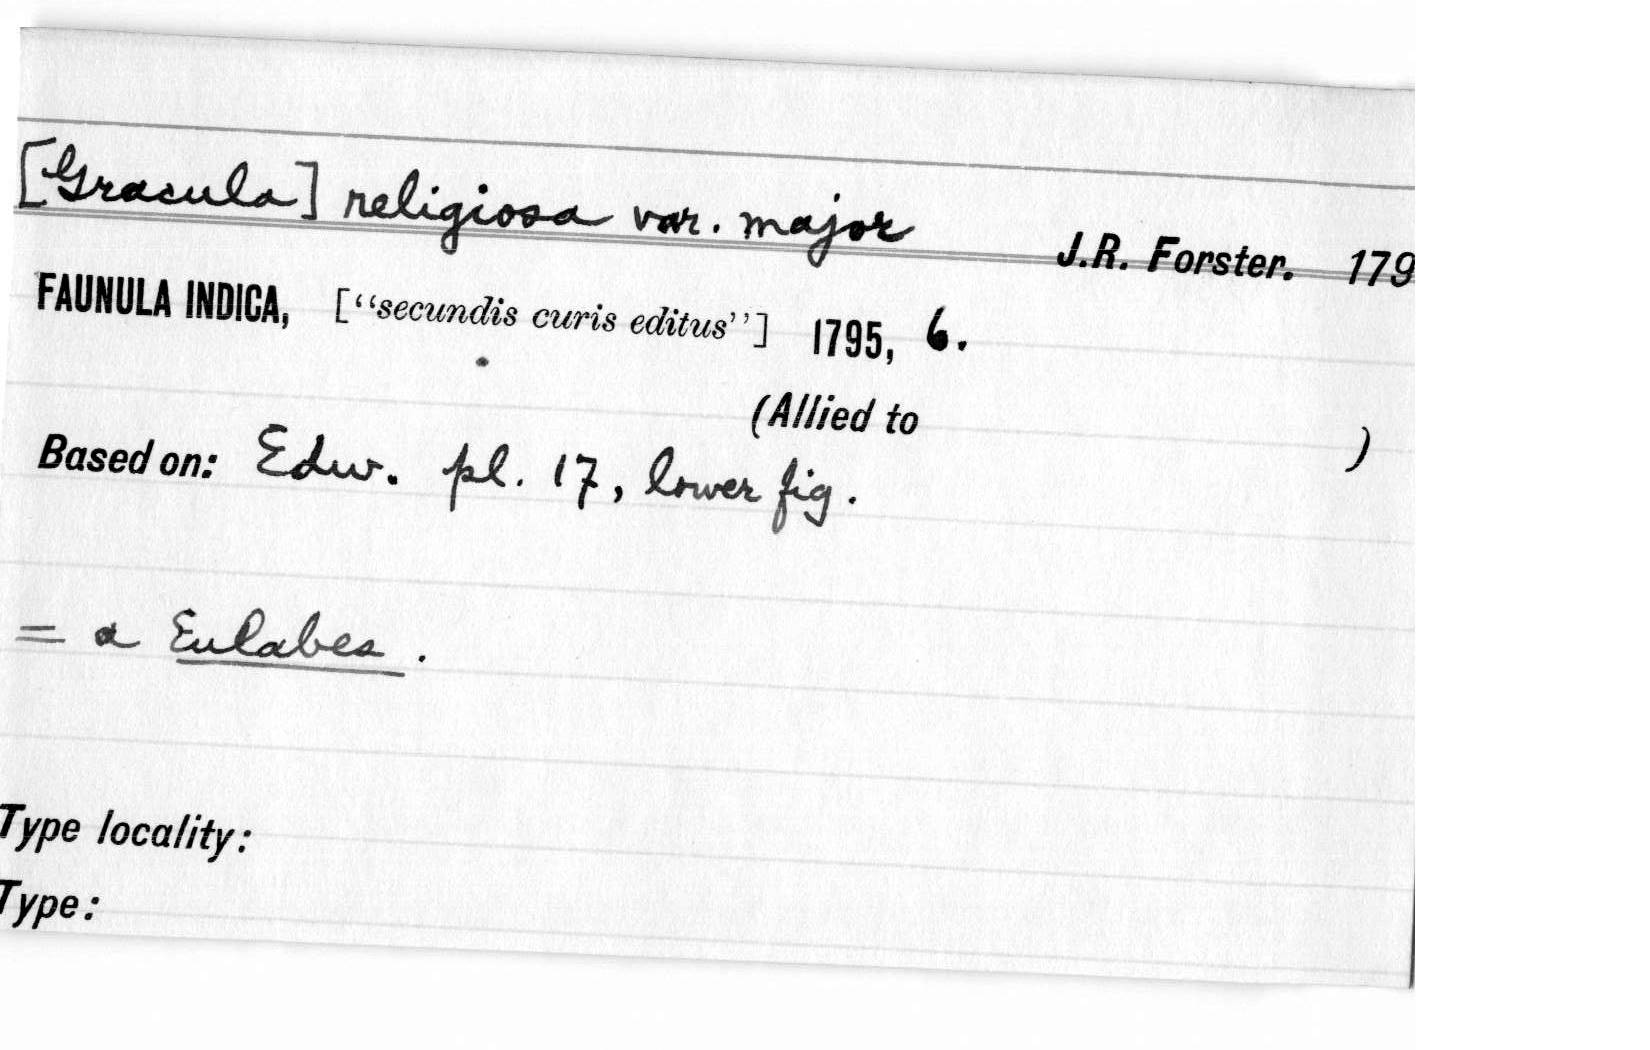 [Gracula] religiosa var. major J.R. Forster. 179
FAUNULA INDICA, [“secundis curis editus”] 1795, 6.
(Allied to )
Based on: Edw. pl. 17, lower fig.
= a Eulabes.
Type locality:
Type: